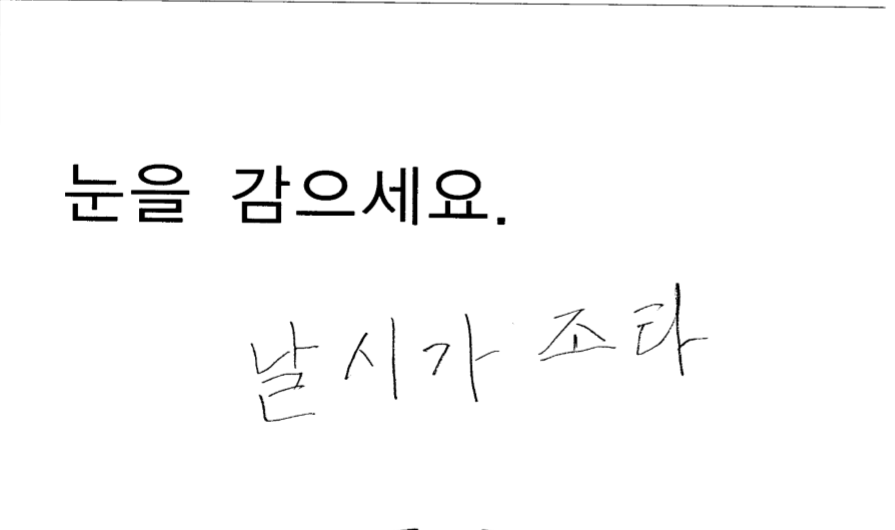 눈을 감으세요.
날시가 조타